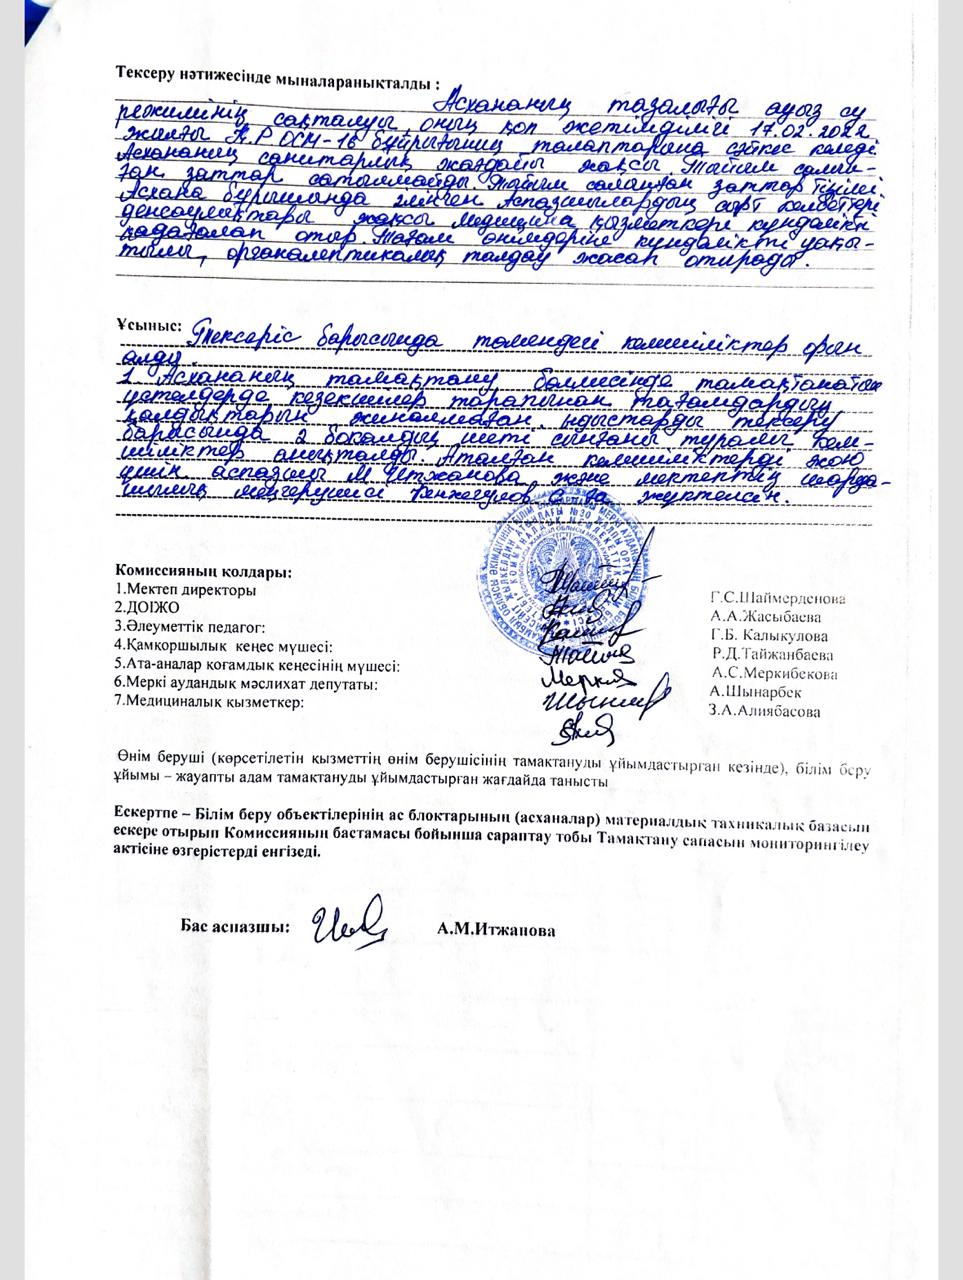 Тексеру нәтижесінде мыналаранықталды :
Асхананың тазалығы ауыз су
режимінің сақталуы оның қол жетімділігі 17.02.2022
жылғы Қ.Р ДСМ-16 бұйрығының талаптарына сәйкес келеді
Асхананың санитарлық жағдайы жақсы Тыйым салын-
ған заттар сатылмайды. Тыйым салынған заттар тізімі
Асхана бұрышында ілінген Аспазшылардың сырт келбеттері
денсаулықтары жақсы Медицина қызметкері күнделікті
қадағалап отыр. Тағам өнімдеріне күнделікті уақы-
тылы, органалептикалық талдау жасап отырады.
Ұсыныс: Тексеріс барысында төмендегі кемшіліктер орын
алды.
1 Асхананың тамақтану бөлмесінде тамақтанатын
үстелдерде кезекшілер тарапынан тағамдардың
қалдықтарын жиналмаған. ыдыстарды тексеру
барысында 2 бокалдың шеті сынғаны туралы кем-
шіліктер анықталды. Аталған кемшіліктерді жою
үшін аспазшы М. Итжанова және мектептің шаруа-
шылық меңгерушісі жүктелсін.
Комиссияның қолдары:
1.Мектеп директоры Г.С.Шаймерденова
2.ДОІЖО А.А.Жасыбаева
3.Әлеуметтік педагог: Г.Б. Калыкулова
4.Қамқоршылық кеңес мүшесі: Р.Д.Тайжанбаева
5.Ата-аналар қоғамдық кеңесінің мүшесі: А.С.Меркибекова
6.Меркі аудандық мәслихат депутаты: А.Шынарбек
7.Медициналық қызметкер: З.А.Алиябасова
Өнім беруші (көрсетілетін қызметтің өнім берушісінің тамақтануды ұйымдастырған кезінде), білім беру
ұйымы – жауапты адам тамақтануды ұйымдастырған жағдайда танысты
Ескертпе – Білім беру объектілерінің ас блоктарының (асханалар) материалдық тахникалық базасын
ескере отырып Комиссияның бастамасы бойынша сараптау тобы Тамақтану сапасын мониторингілеу
актісіне өзгерістерді енгізеді.
Бас аспазшы: А.М.Итжанова